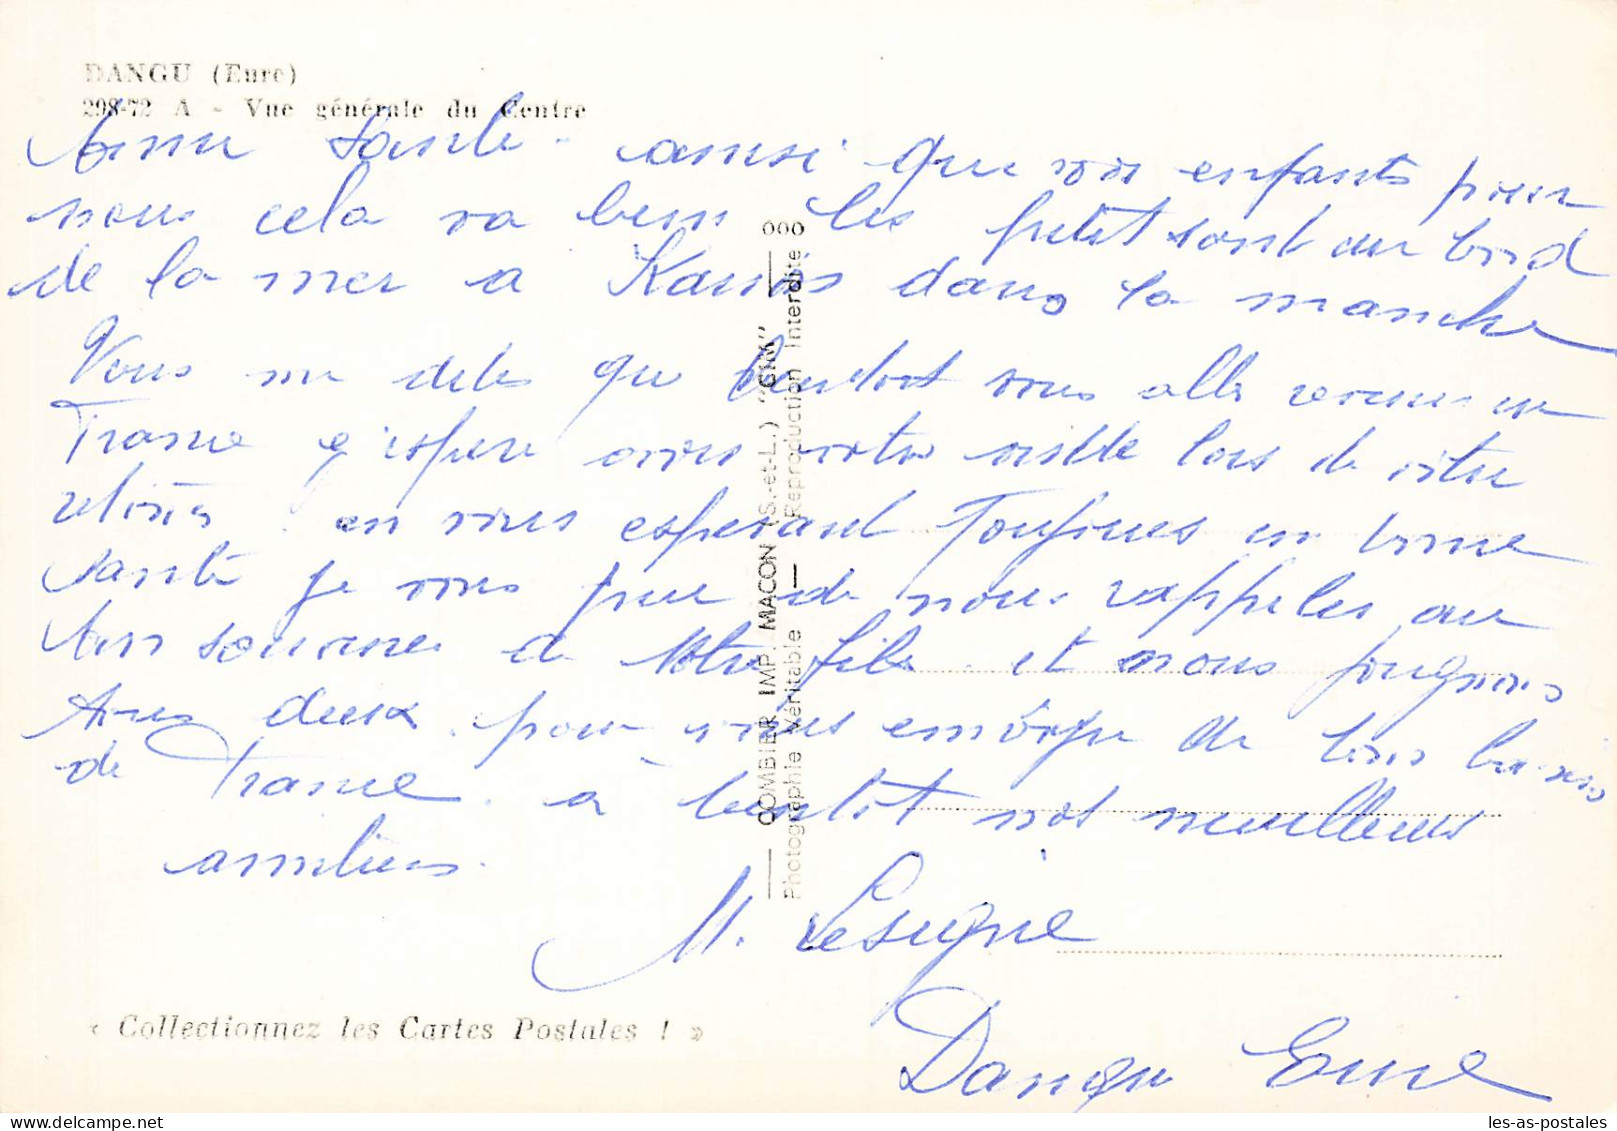 DANGU (Eure)
298-72 A - Vue générale du Centre
bonne santé ainsi que vos enfants pour
nous cela va bien les petit sont au bord
de la mer a dans la manche
Vous me dites que bientot vous alle revenir en
France j'espere vous votre visible lors de votre
en vous esperant Toujours en bonne
santé je vous prie de nous rappeles au
bon souvenir de Votre fils et nous joignons
tous deux pour vous de bons baisers
de France a bientot nos meuilleures
amities
M. Lesugne
Dangu Eure
COMBIER IMP. MACON (S.-et-L.) "CIM"
Photographie Véritable — Reproduction Interdite
ooo
« Collectionnez les Cartes Postales ! »
les-as-postales